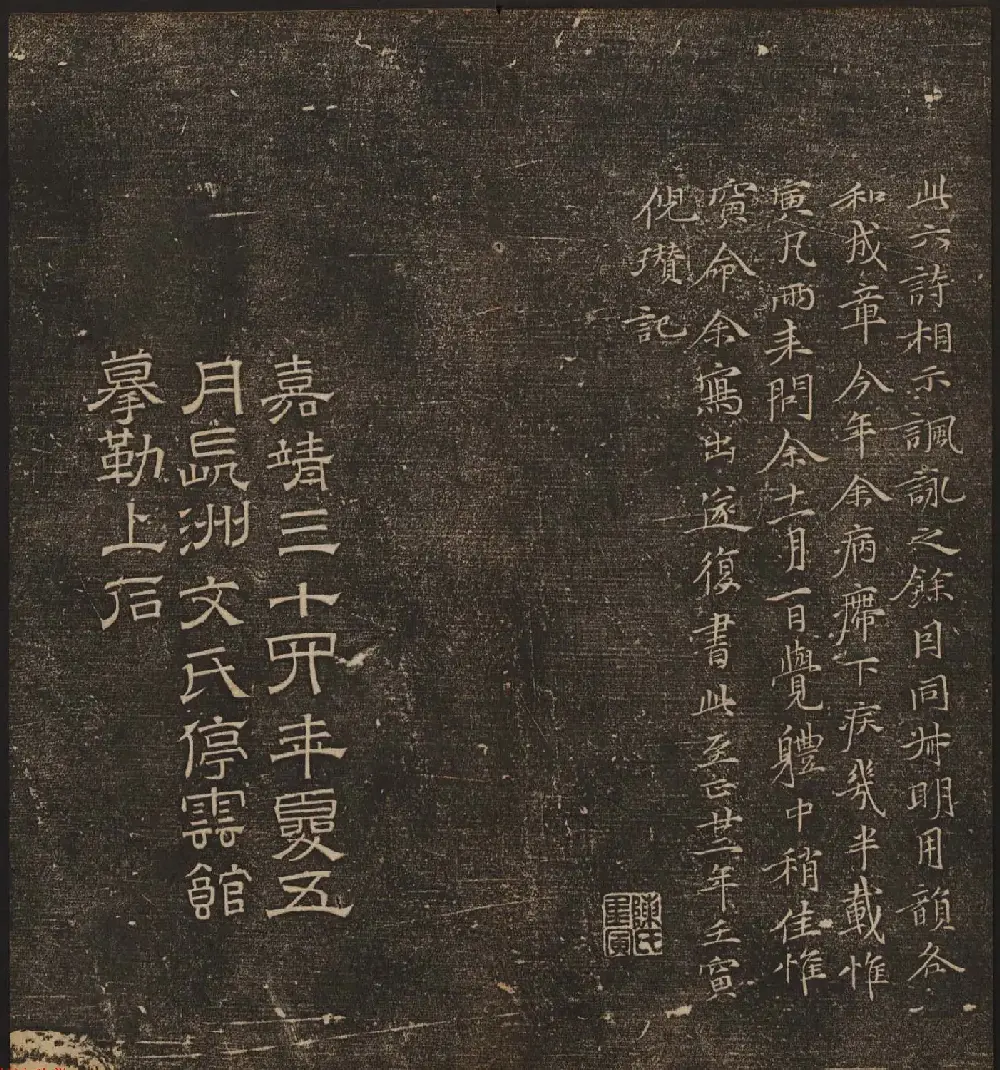 此六詩相示諷詠之餘因同叔明用韻各
和成章今年余病滯下疾幾半載惟
寅凡兩来問余十一月一日覺體中稍佳惟
寅命余寫出遂復書此至正廿二年壬寅
倪瓚記
陳氏惟寅
嘉靖三十四年夏五
月長洲文氏停雲館
摹勒上石